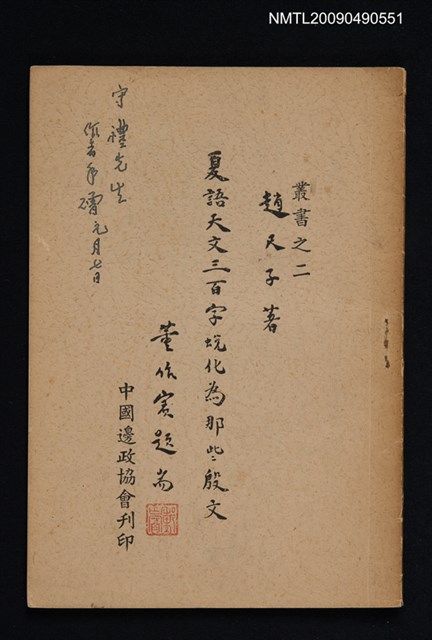 NMTL20090490551
叢書之二
趙尺子著
夏語天文三百字蛻化為那些殷文
董作賓題耑
中國邊政協會刊印
守禮先生
作者手贈 元月七日